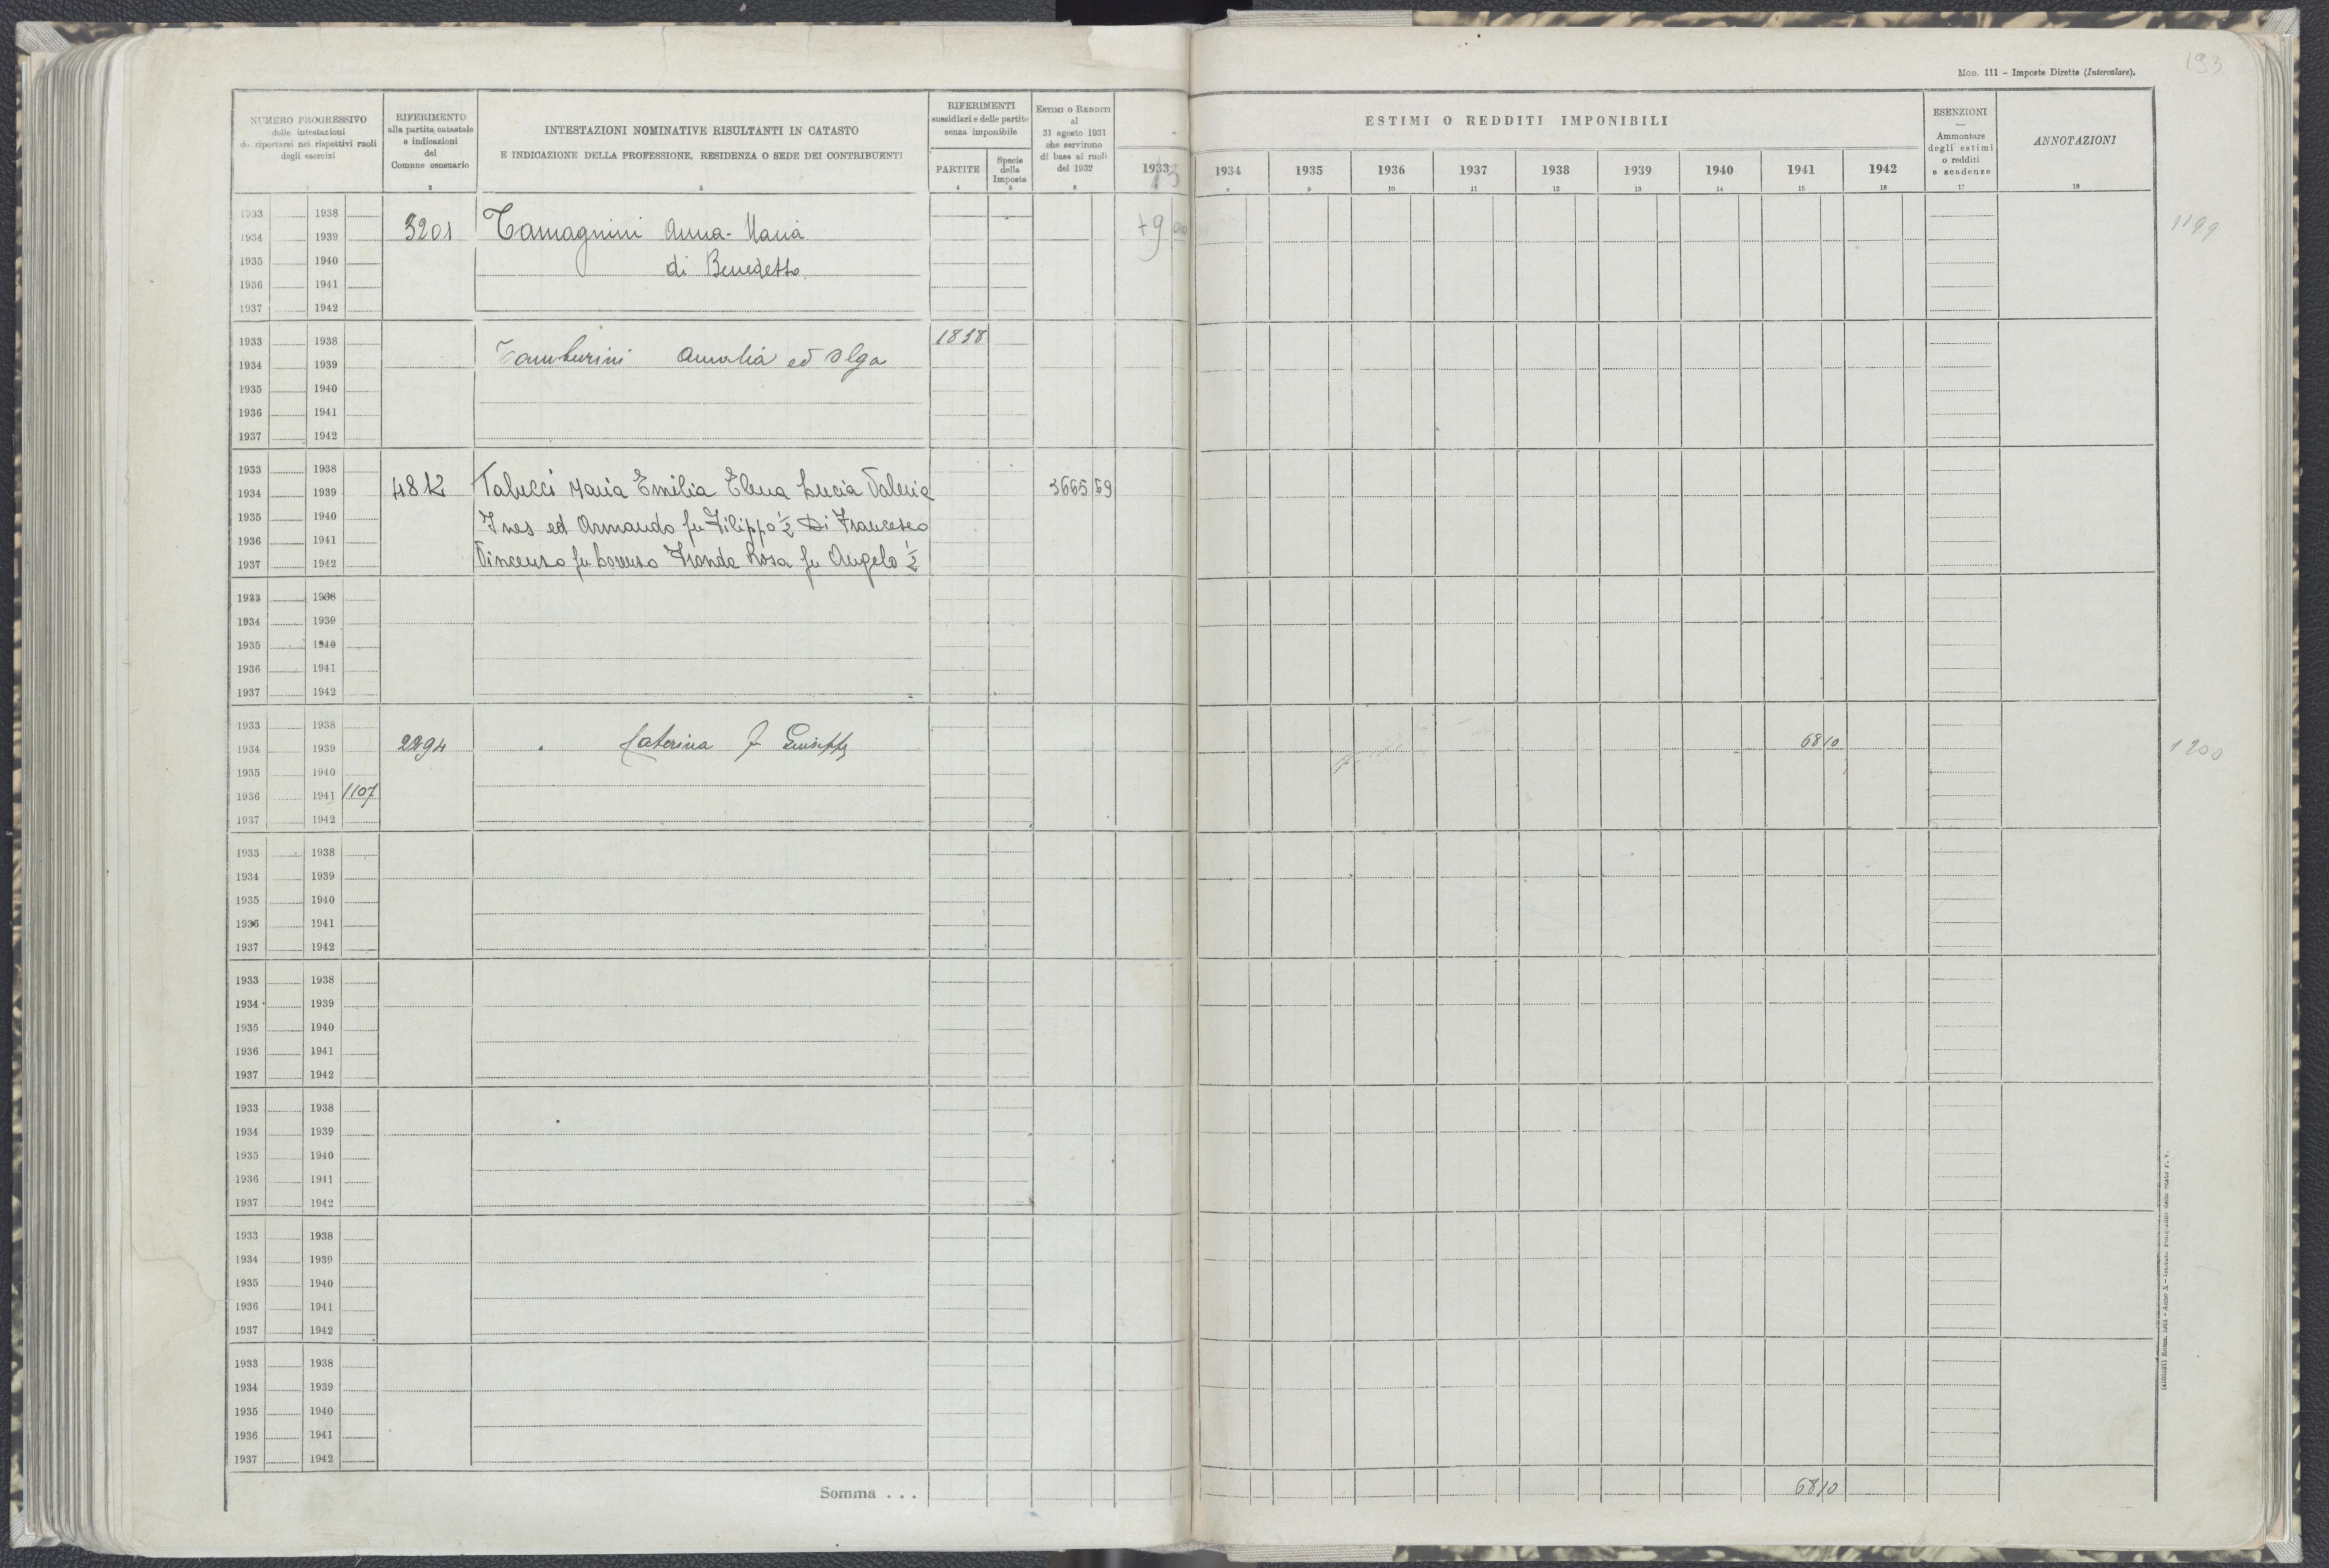 MOD. 111 – Imposte Dirette (Intercalare).
193
NUMERO PROGRESSIVO
delle intestazioni
da riportarsi nei rispettivi ruoli
degli esercizi
RIFERIMENTO
alla partita catastale
e indicazioni
del
Comune censuario
2
INTESTAZIONI NOMINATIVE RISULTANTI IN CATASTO
E INDICAZIONE DELLA PROFESSIONE, RESIDENZA O SEDE DEI CONTRIBUENTI
3
RIFERIMENTI
sussidiari e delle partite
senza imponibile
PARTITE
4
Specie
della
Imposta
5
ESTIMI O REDDITI
al
31 agosto 1931
che servirono
di base ai ruoli
del 1932
6
ESTIMI O REDDITI IMPONIBILI
1933 1934 1935 1936 1937 1938 1939 1940 1941 1942
8 9 10 11 12 13 14 15 16
ESENZIONI
—
Ammontare
degli estimi
o redditi
e scadenze
17
ANNOTAZIONI
18
1933 1938
1934 1939 3201 Tamagnini Anna-Maria +9 1199
1935 1940 di Benedetto
1936 1941
1937 1942
1933 1938 1838
1934 1939 Tamburini Amalia ed Olga
1935 1940
1936 1941
1937 1942
1933 1938
1934 1939 4812 Talucci Maria Emilia Elena Lucia Valeria 3665 59
1935 1940 Ines ed Armando fu Filippo ½ Di Francesco
1936 1941
1937 1942 Vincenzo fu Lorenzo Fronda Rosa fu Angelo ½
1933 1938
1934 1939
1935 1940
1936 1941
1937 1942
1933 1938
1934 1939 2294 Caterina f Giuseppe 68 10 1200
1935 1940
1936 1941 1107
1937 1942
1933 1938
1934 1939
1935 1940
1936 1941
1937 1942
1933 1938
1934 1939
1935 1940
1936 1941
1937 1942
1933 1938
1934 1939
1935 1940
1936 1941
1937 1942
1933 1938
1934 1939
1935 1940
1936 1941
1937 1942
1933 1938
1934 1939
1935 1940
1936 1941
1937 1942
Somma . . . 68 10